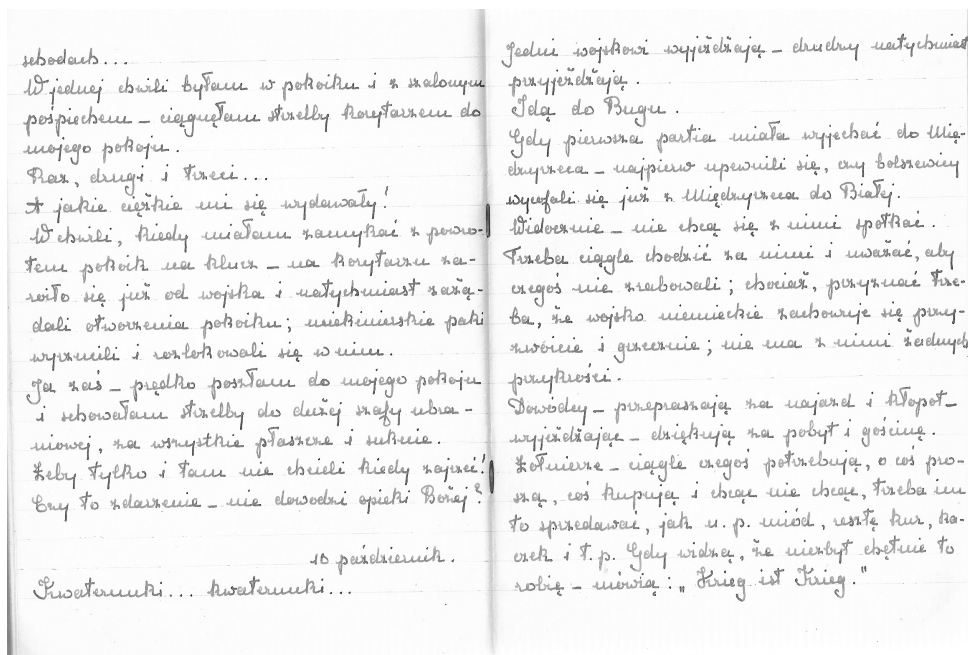 schodach...
W jednej chwili byłam w pokoiku i z szalonym
pośpiechem – ciągnęłam strzelby korytarzem do
mojego pokoju.
Raz, drugi i trzeci...
A jakie ciężkie mi się wydawały!
W chwili, kiedy miałam zamykać z powro-
tem pokoik na klucz – na korytarzu za-
roiło się już od wojska i natychmiast zażą-
dali otworzenia pokoiku; miekinierskie paki
wyrzucili i rozlokowali się w nim.
Ja zaś – prędko poszłam do mojego pokoju
i schowałam strzelby do dużej szafy ubra-
niowej, za wszystkie płaszcze i suknie.
Żeby tylko i tam nie chcieli kiedy zajrzeć!
Czy to zdarzenie – nie dowodzi opieki Bożej?
10 październik.
Kwaterunki... kwaterunki...
Jedni wojskowi wyjeżdżają – drudzy natychmiast
przyjeżdżają.
Idą do Bugu.
Gdy pierwsza partia miała wyjechać do Mię-
dzyrzeca – najpierw upewnili się, czy bolszewicy
wycofali się już z Międzyrzeca do Białej.
Widocznie – nie chcą się z nimi spotkać.
Trzeba ciągle chodzić za nimi i uważać, aby
czegoś nie zrabowali; chociaż, przyznać trze-
ba, że wojsko niemieckie zachowuje się przy-
zwoicie i grzecznie; nie ma z nimi żadnych
przykrości.
Dowódcy – przepraszają za najazd i kłopot –
wyjeżdżając – dziękują za pobyt i gościnę.
Żołnierze – ciągle czegoś potrzebują, o coś pro-
szą, coś kupują i chcąc nie chcąc, trzeba im
to sprzedawać, jak n.p. miód, resztę kur, ka-
czek i t.p. Gdy widzą, że niezbyt chętnie to
robię – mówią: „Krieg ist Krieg."